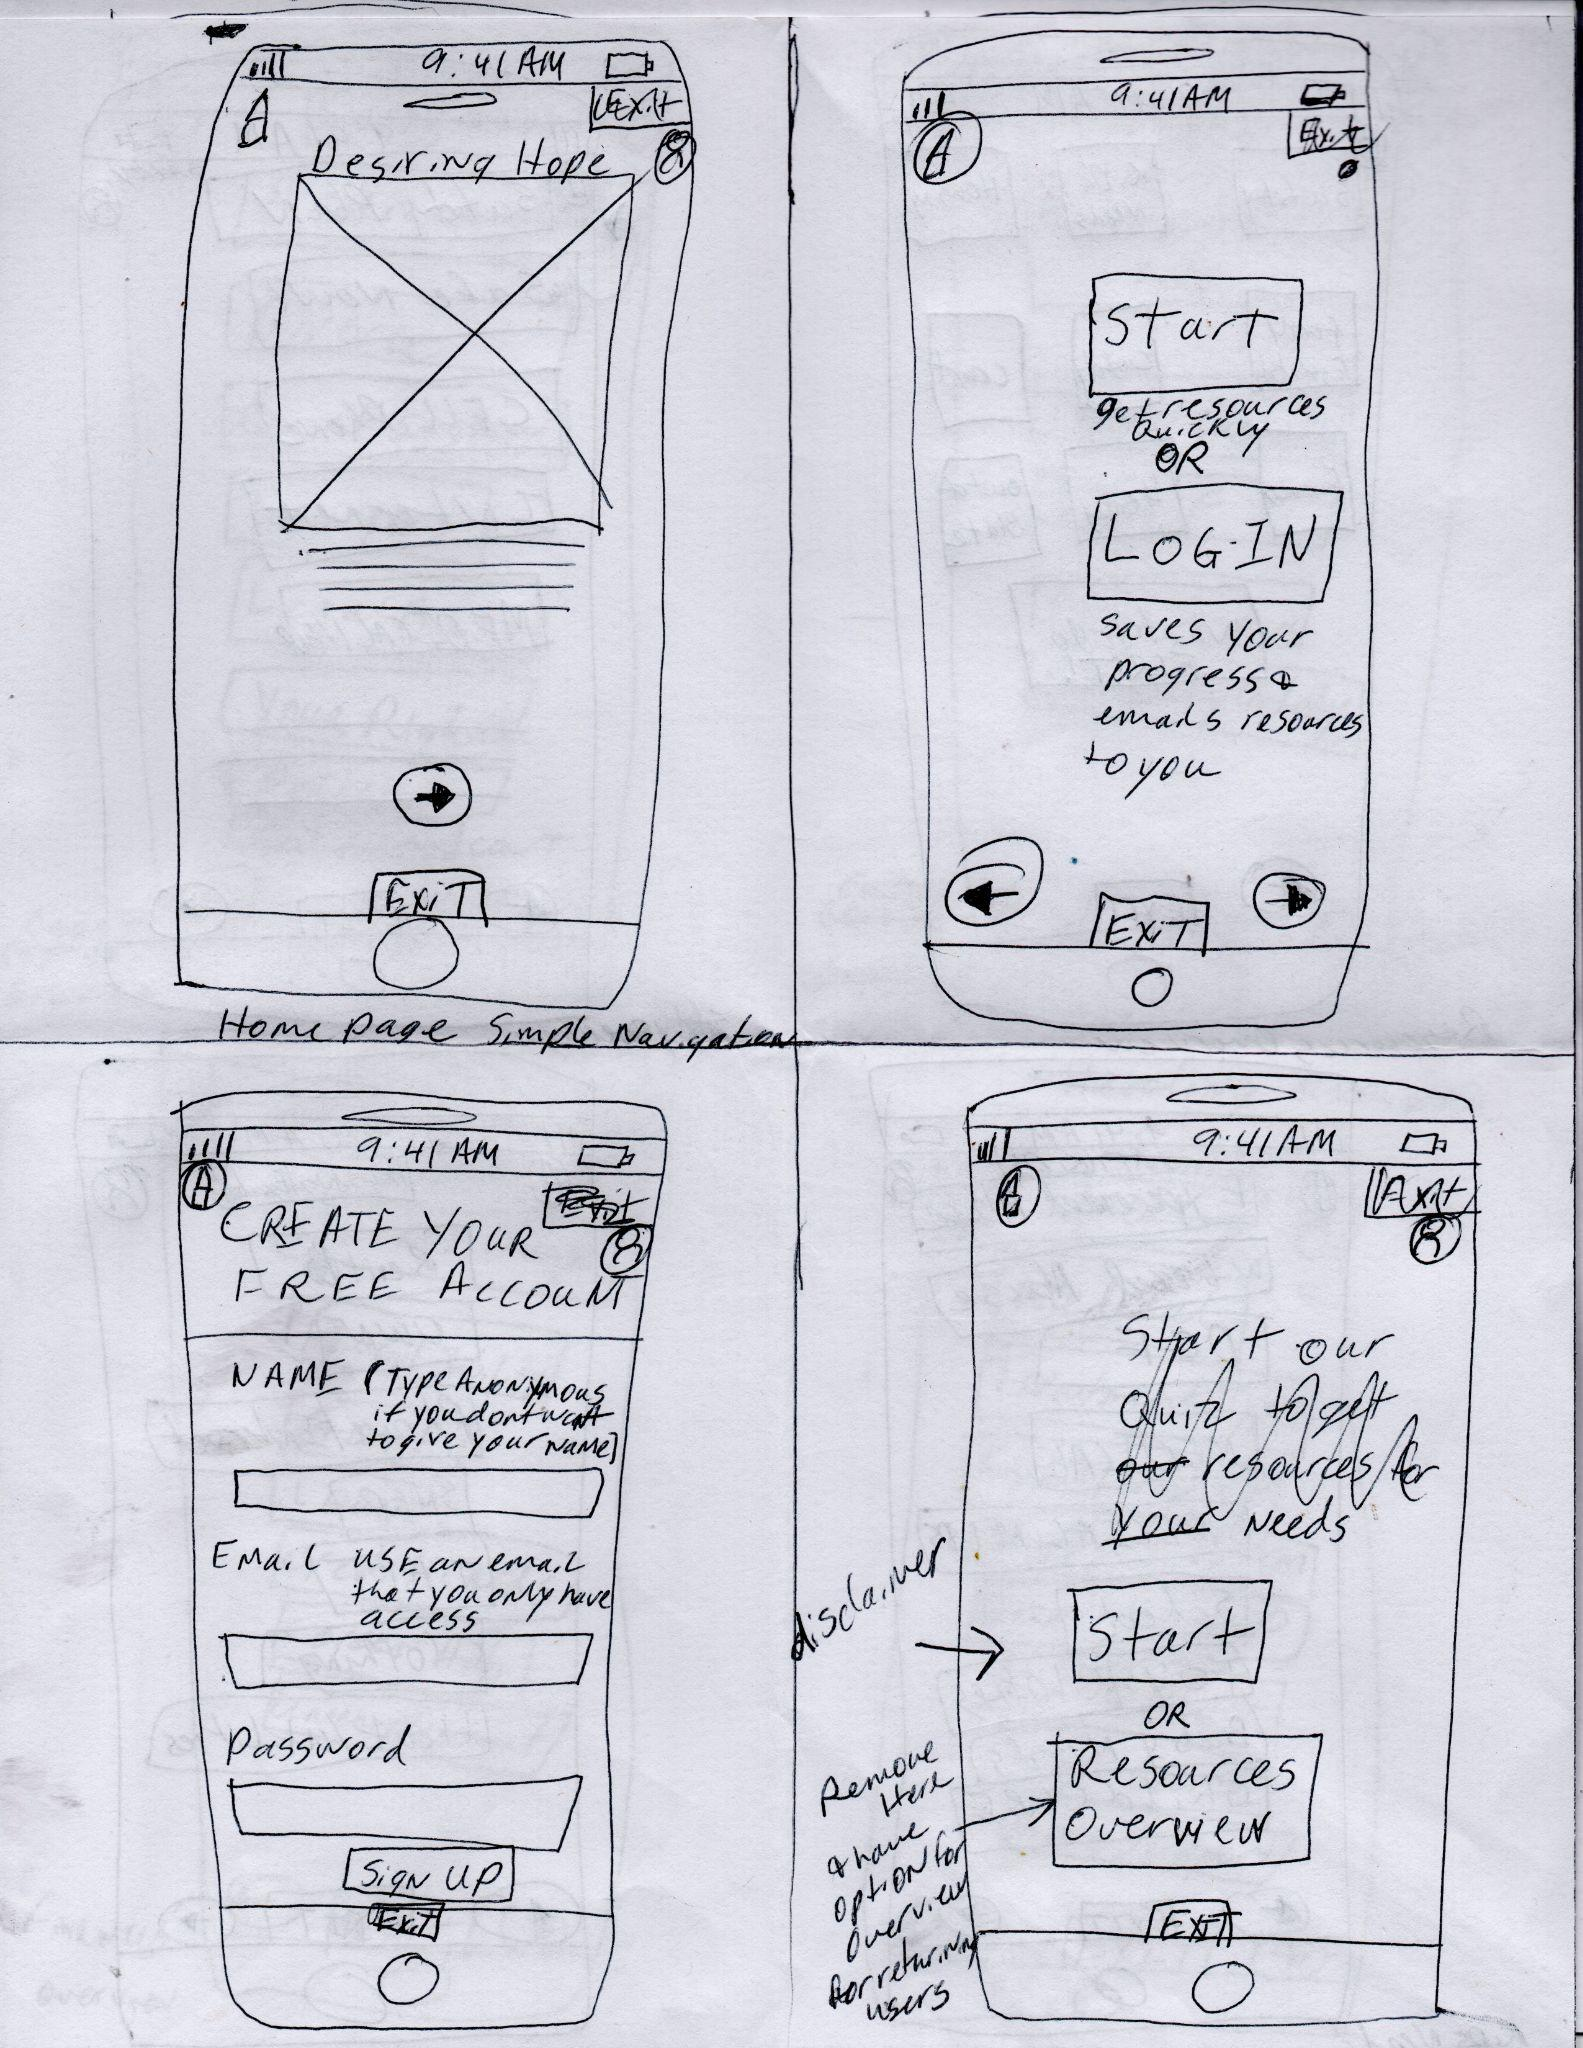 9:41 AM
Exit
A
Desiring Hope
EXIT
Home page Simple Navigation
9:41 AM
A
Exit
Start
get resources
Quickly
OR
LOG-IN
saves your
progress &
emails resources
to you
EXIT
9:41 AM
A
Exit
CREATE YOUR
FREE ACCOUNT
NAME (Type Anonymous
if you dont want
to give your name)
Email USE an email
that you only have
access
Password
Sign UP
Exit
9:41 AM
Exit
Start our
Quiz to get
our resources for
Your Needs
disclaimer
Start
OR
Resources
Overview
Remove
Here
& have
option for
overview
for returning
users
EXIT